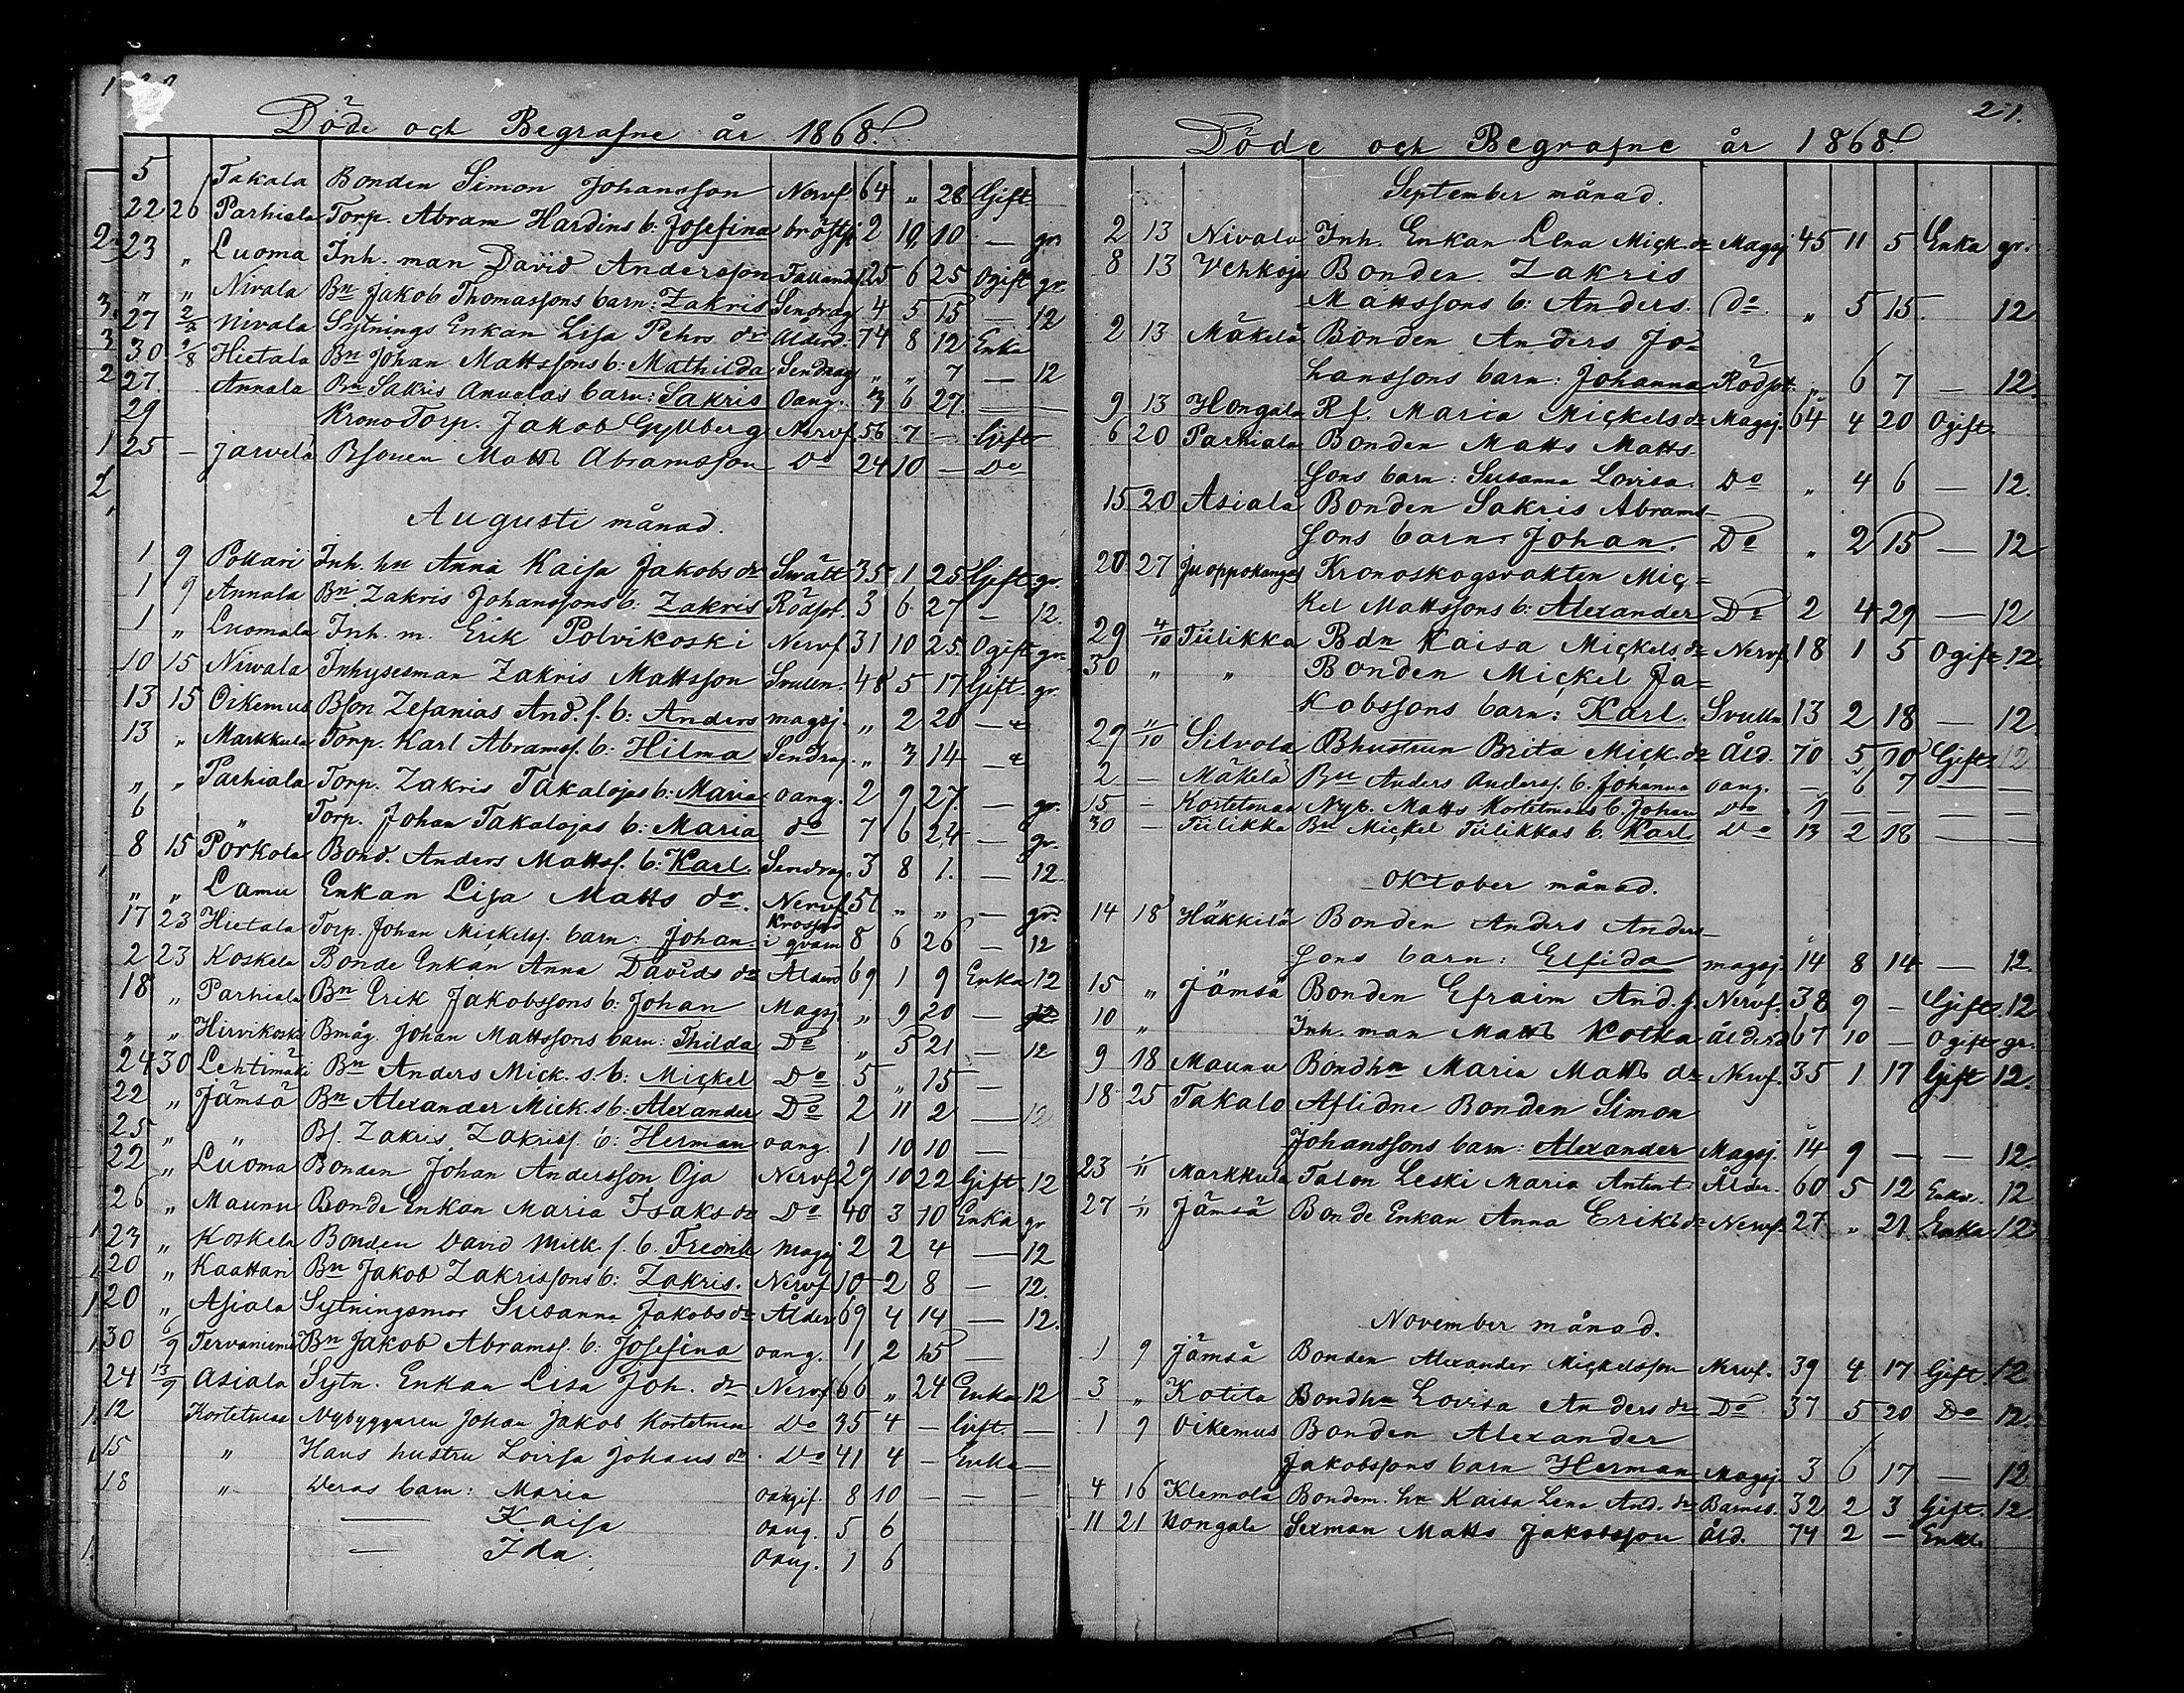 Döde och Begrafne år 1868.
5 Takala Bonden Simon Johansson Nervf. 64 „ 28 Gift
22 26 Parhiala Torp. Abram Hardins b: Josefina bröstsj. 2 10 — gr.
23 „ Luoma Inh. man David Andersson 25 6 25 Ogift gr.
„ „ Nivala Bn Jakob Thomassons barn: Zakris Sendrag 4 5 15 — 12
27 2/8 Nivala Sytnings Enkan Lisa Pehrs dr Ålderd. 74 8 12 Enka
30 2/8 Hietala Bn Johan Mattssons b: Mathilda Sendrag „ „ 7 — 12
27. Annala Bn Sakris Annalas barn: Sakris Oang. 3 6 27 —
29 Krono Torp. Jakob Gyllberg Nervf. 56 7 — Gift
25 — Jarvelä Bsonen Matts Abramsson Do 24 10 — Do
Augusti månad.
1 9 Pollari Inh. hu Anna Kaisa Jakobs dr Swält 35 1 25 Gift gr.
1 9 Annala Bn Zakris Johanssons b: Zakris Rödsot. 3 6 27 — 12.
1 „ Luomala Inh. m. Erik Polvikoski Nervf 31 10 25. Ogift gr.
10 15 Nivala Inhysesman Zakris Mattsson Svulln. 48 5 17 Gift. gr.
13 15 Oikemus Bson Zefanias And. s. b: Anders magsj. „ 2 20 —
13 „ Markkula Torp. Karl Abramss. b: Hilma Sendrag. „ 3 14 —
„ „ Parhiala Torp. Zakris Takalojas b: Maria oang. 2 9 27. — gr.
6 „ Torp. Johan Takalojas b: Maria do 7 6 24 — gr.
8 15 Porkola Bond. Anders Mattss. b: Karl. Sendrag. 3 8 1. — 12.
„ „ Lamu Enkan Lisa Matts dr. Nervf. 51 „ „ — gr.
17 23 Hietala Torp. Johan Mickelss. barn: Johan. Krossad i qvarn 8 6 26 — 12
2 23 Koskela Bonde Enkan Anna Davids dr Ålderd 69 1 9 Enka 12
18 „ Parhiala Bn Erik Jakobssons b: Johan Magsj „ 9 20 —
„ „ Hirvikoski Bmåg. Johan Mattssons barn: Thilda Do „ 5 21 — 12
24 30 Lehtimäki Bn Anders Mick. s. b: Mickel Do 5 „ 15 —
22 „ Jämsä Bn Alexander Mick. s b: Alexander Do 2 11 2 — 12
25 „ „ Bs. Zakris Zakriss. b: Herman oang. 1 10 10 —
22 „ Luoma Bonden Johan Andersson Oja Nervf. 29 10 22 Gift 12
26 „ Maunu Bonde Enkan Maria Isaks dr Do 40 3 10 Enka gr
23 „ Koskela Bonden David Mick. s. b. Fredrik Magsj 2 2 4 — 12
20 „ Kaattari Bn Jakob Zakrissons b: Zakris. Nervf 10 2 8 — 12.
20 „ Asiala Sytningsmor Susanna Jakobs dr Ålder. 69 4 14 — 12.
30 6/9 Tervaniemi Bn Jakob Abramss. b: Josefina oang. 1 2 15 —
24 13/9 Asiala Sytn. Enkan Lisa Joh. dr Nervf 66 „ 24 Enka 12
12 Kortetmaa Nybyggaren Johan Jakob Kortetmaa Do 35 4 — Gift. —
15 „ Hans hustru Lovisa Johans dr. Do 41 4 — Enka —
18 „ Deras barn: Maria oangif. 8 10 — — —
— Kaisa oang. 5 6
— Ida. oang. 1 6
21.
Döde och Begrafne år 1868.
September månad.
2 13 Nivala Inh. Enkan Lena Mick. dr Magsj 45 11 5 Enka gr.
8 13 Vehkoja Bonden Zakris
Mattssons b: Anders. do. „ 5 15. 12
2 13 Mäkelä Bonden Anders Jo=
hanssons barn: Johanna Rödsot. „ 6 7 — 12.
9 13 Hongala Rf. Maria Mickels dr Magsj. 64 4 20 Ogift.
6 20 Parhiala Bonden Matts Matts-
sons barn: Susanna Lovisa. Do „ 4 6 — 12.
15 20 Asiala Bonden Sakris Abrams-
sons barn: Johan. Do „ 2 15 — 12
20 27 Juoppokangas Kronoskogsvakten Mic=
kel Mattssons b: Alexander Do 2 4 29 — 12
29 4/10 Tiilikka Bdn Kaisa Mickels dr Nervf 18 1 5 Ogift 12.
30 „ „ Bonden Mickel Ja=
kobssons barn: Karl. Svulln 13 2 18 — 12.
29 11/10 Silvola Bhustrun Brita Mick. dr Åld. 70 5 10 Gift. 12
2 — Mäkelä Bn Anders Anderss. b. Johanna oang. — 6 7 —
15 — Kortetmaa Nyb. Matts Kortetmaas b. Johan Do 1 — —
30 — Tiilikka Bn Mickel Tiilikkas b. Karl Do 13 2 18 —
Oktober månad.
14 18 Häkkilä Bonden Anders Anders-
sons barn: Elfida magsj. 14 8 14 — 12.
15 „ Jämsä Bonden Efraim And. s. Nervf. 38 9 — Gift. 12
10 „ Inh. man Matts Kotka ålderd 67 10 — Ogift gr.
9 18 Maunu Bondhn Maria Matts dr Nervf. 35 1 17 Gift 12.
18 25 Takalo Aflidne Bonden Simon
Johanssons barn: Alexander Magsj. 14 9 — — 12.
23 1/11 Markkula Talon Leski Maria Antint. Ålder. 60 5 12 Enka. 12
27 1/11 Jämsä Bonde Enkan Anna Eriks dr Nervf. 27 „ 21 Enka 12
November månad.
1 9 Jämsä Bonden Alexander Mickelsson Nervf. 39 4 17 Gift. 12
3 „ Kotila Bondhn Lovisa Anders dr Do 37 5 20 Do 12.
1 9 Oikemus Bonden Alexander
Jakobssons barn Herman Magsj. 3 6 17 — 12
4 16 Klemola Bondem. hu Kaisa Lena And. dr Barnss. 32 2 3 Gift. 12.
11 21 Hongala Sexman Matts Jakobsson åld. 74 2 — Enkl.